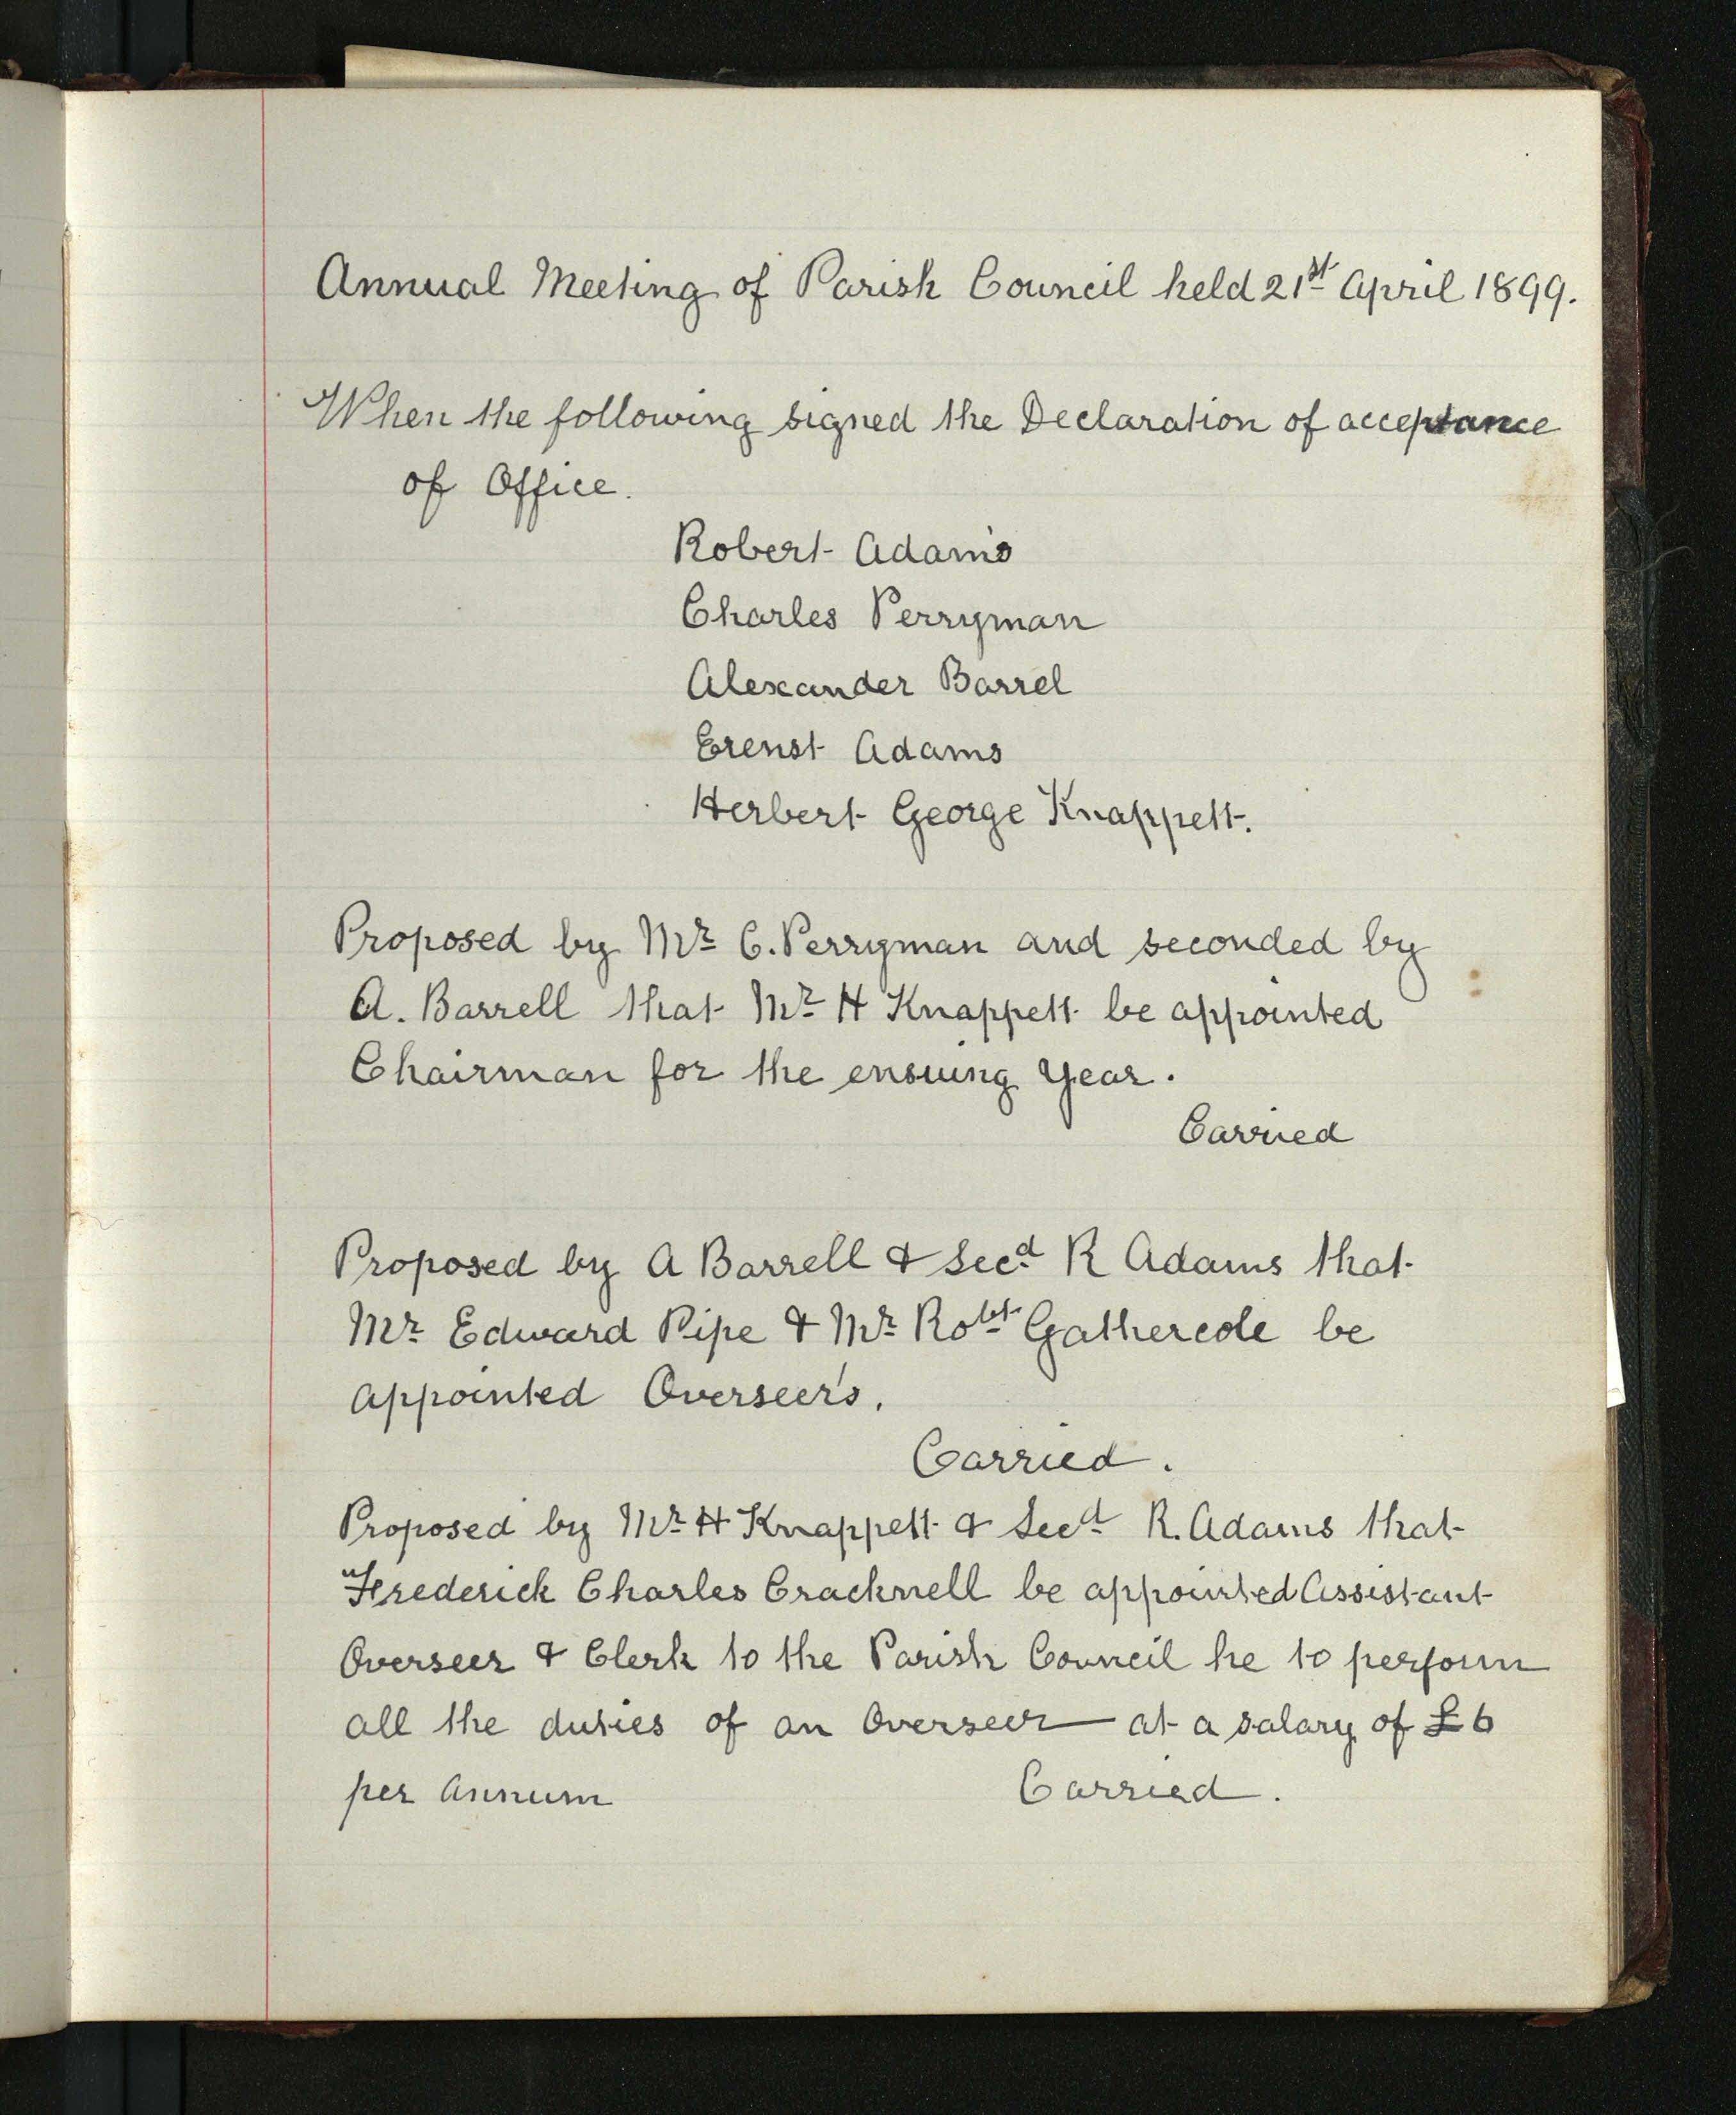 Annual Meeting of Parish Council held 21st April 1899.
When the following signed the Declaration of acceptance
of Office.
Robert Adams
Charles Perryman
Alexander Barrel
Erenst Adams
Herbert George Knappett.
Proposed by Mr C. Perryman and seconded by
A. Barrell that Mr H Knappett be appointed
Chairman for the ensuing Year.
Carried
Proposed by A Barrell & Secd R Adams that
Mr Edward Pipe & Mr Robt Gathercole be
appointed Overseer's.
Carried.
Proposed by Mr H Knappett & Secd R. Adams that
Frederick Charles Cracknell be appointed Assistant
Overseer & Clerk to the Parish Council he to perform
all the duties of an Overseer at a salary of £6
per Annum Carried.